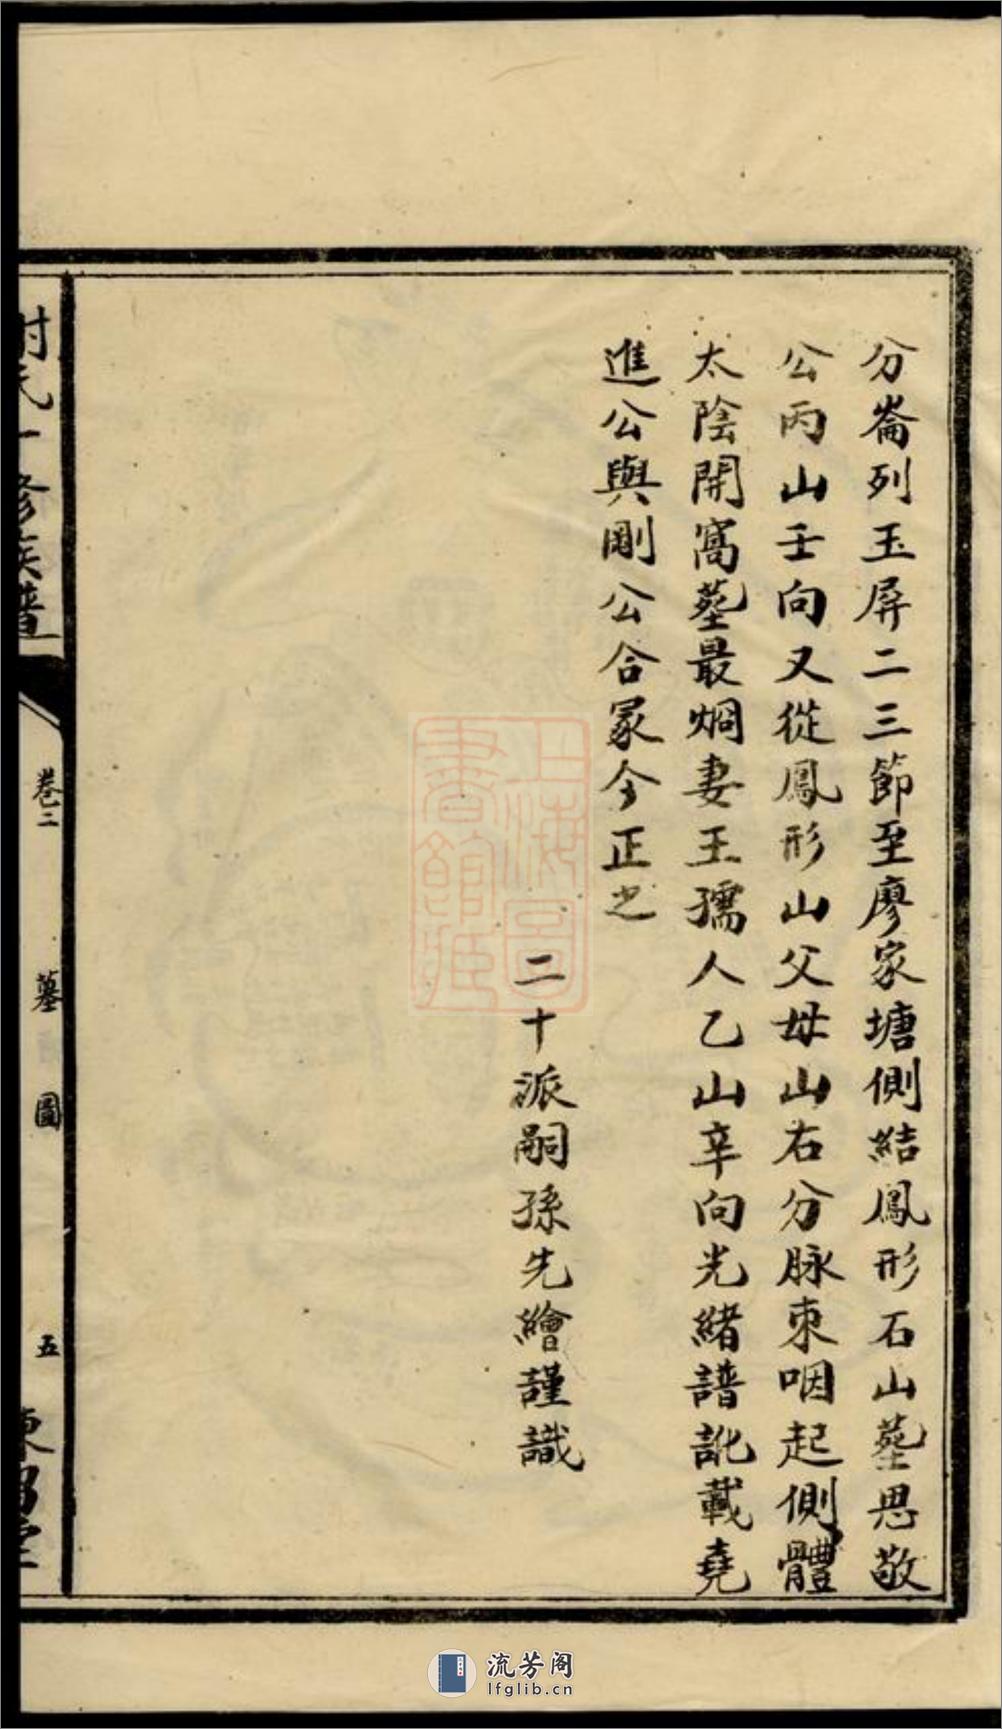 分崙列玉屏二三節至廖家塘側結鳳形石山塟思敬
公丙山壬向又從鳳形山父母山右分脉束咽起側體
太陰開窩塟最烱妻王孺人乙山辛向光緒譜訛載堯
進公與剛公合冢今正之
二十派嗣孫先繪謹識
氏 修族譜
卷二
墓圖
五
上海圖書館藏
流芳阁
lfglib.cn